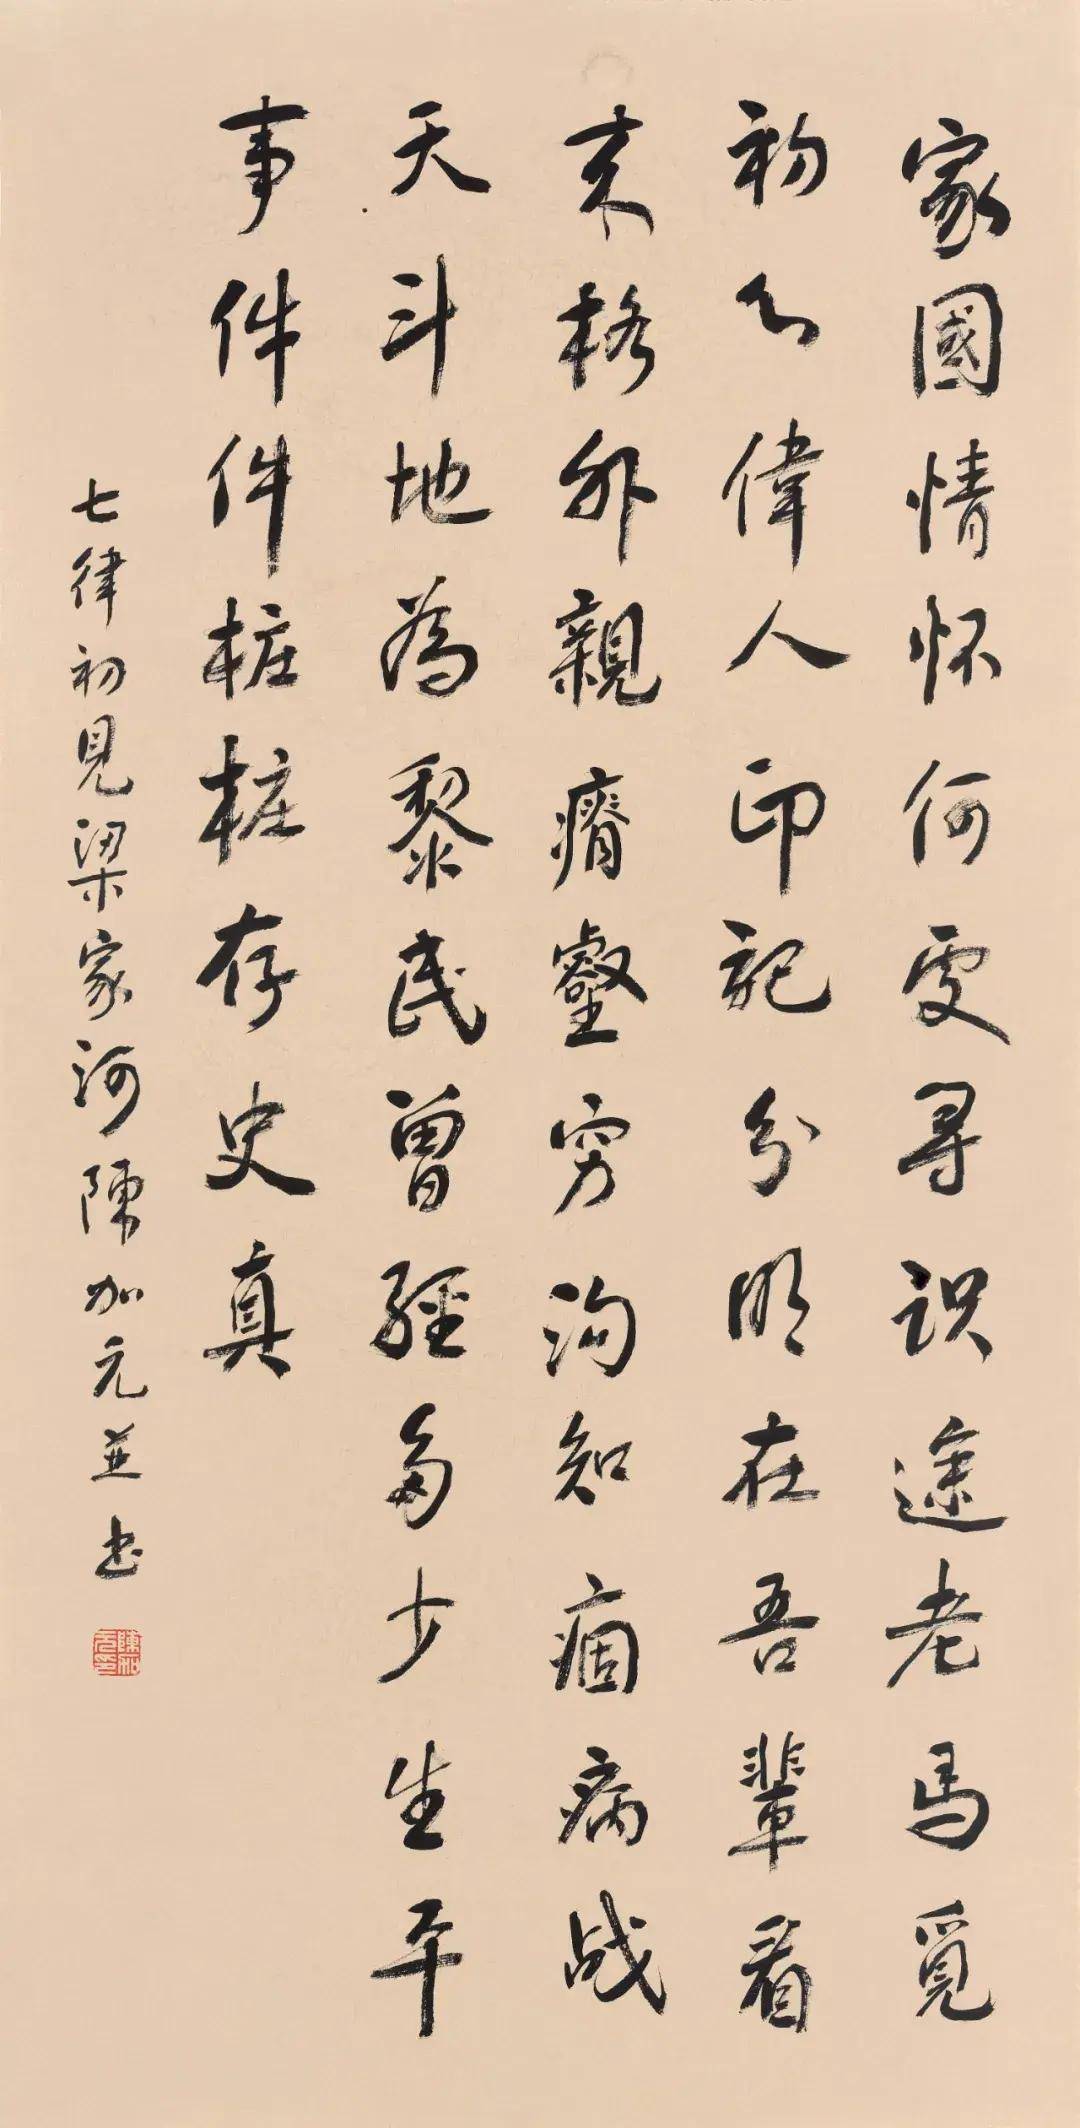 家國情怀何处寻识途老马觅
初心偉人印記分明在吾輩看
来格外親瘠壑穷沟知痼病战
天斗地為黎民曾經多少生平
事件件桩桩存史真
七律初見梁家河陳加元並书